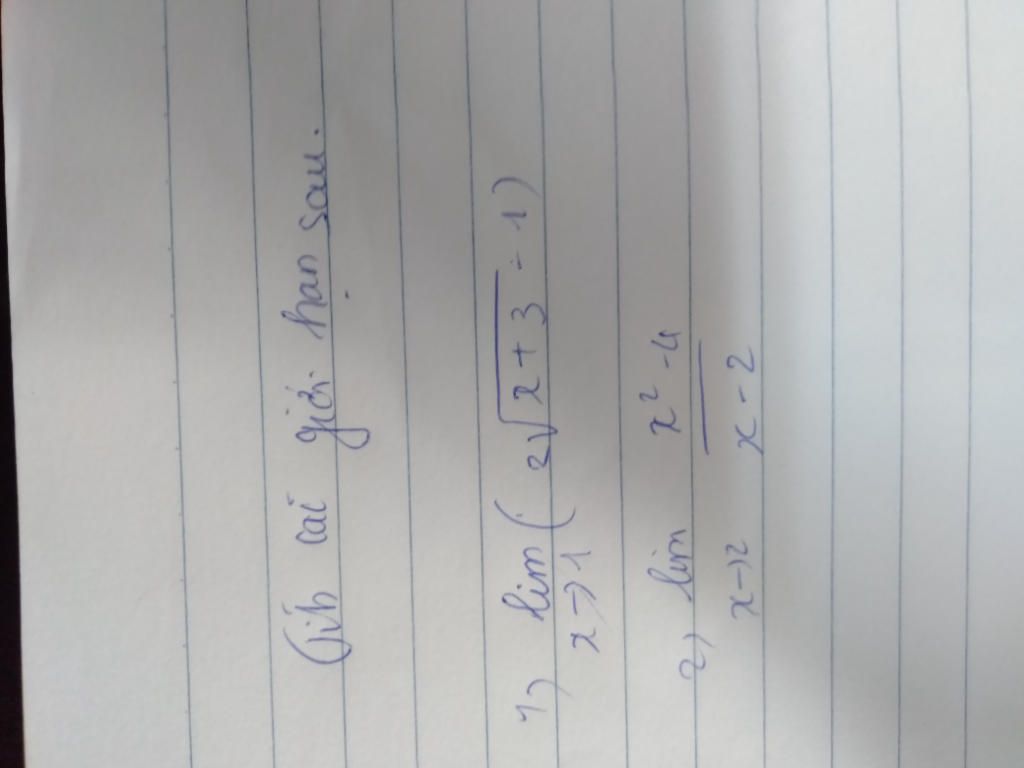 Tính cái giới hạn sau.
1) lim x→1 ( 2√x+3 - 1)
2) lim x→2 x² - 4 / x - 2